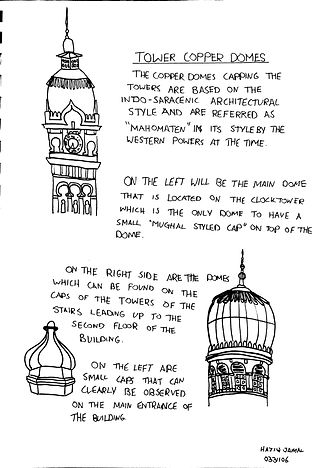 TOWER COPPER DOMES
THE COPPER DOMES CAPPING THE
TOWERS ARE BASED ON THE
INDO-SARACENIC ARCHITECTURAL
STYLE AND ARE REFERRED AS
"MAHOMATEN" IN ITS STYLE BY THE
WESTERN POWERS AT THE TIME.
ON THE LEFT WILL BE THE MAIN DOME
THAT IS LOCATED ON THE CLOCKTOWER
WHICH IS THE ONLY DOME TO HAVE A
SMALL "MUGHAL STYLED CAP" ON TOP OF THE
DOME.
ON THE RIGHT SIDE ARE THE DOMES
WHICH CAN BE FOUND ON THE
CAPS OF THE TOWERS OF THE
STAIRS LEADING UP TO THE
SECOND FLOOR OF THE
BUILDING.
ON THE LEFT ARE
SMALL CAPS THAT CAN
CLEARLY BE OBSERVED
ON THE MAIN ENTRANCE OF
THE BUILDING
HAZIQ JAMAL
0331106